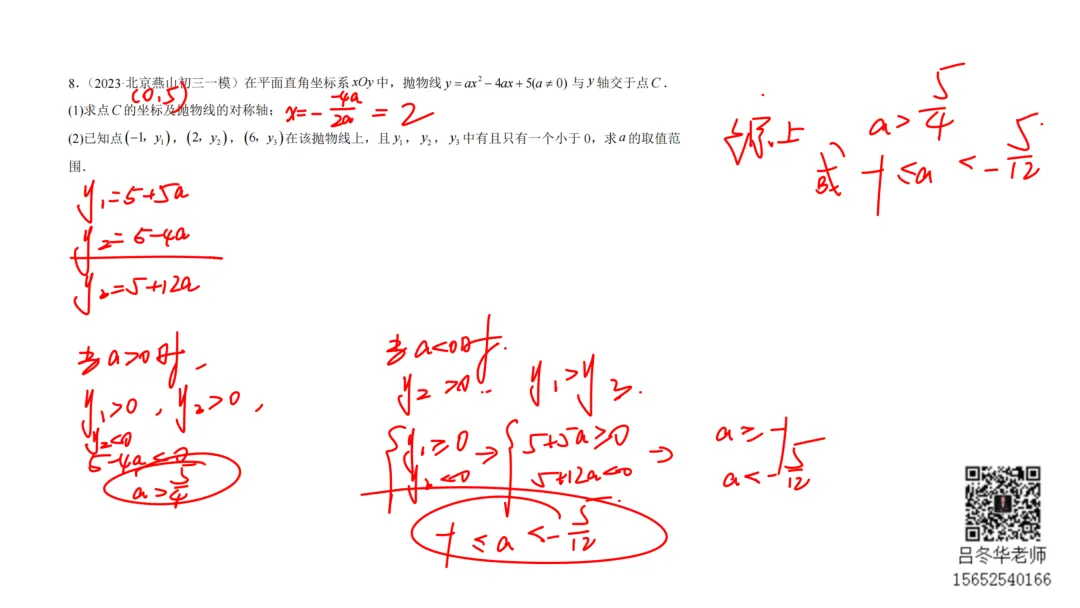 8.（2023·北京燕山初三一模）在平面直角坐标系xOy中，抛物线y=ax²−4ax+5(a≠0)与y轴交于点C．
(0,5)
(1)求点C的坐标及抛物线的对称轴； x=−\frac{-4a}{2a}=2
(2)已知点(−1, y₁)，(2, y₂)，(6, y₃)在该抛物线上，且y₁，y₂，y₃中有且只有一个小于0，求a的取值范
围．
y₁=5+5a
y₂=5−4a
y₂=5+12a
当a>0时，
y₁>0，y₂>0，
y₂<0
5−4a<0
a>\frac{5}{4}
当a<0时．
y₂>0．y₁>y₃．
{y₁≥0 → {5+5a≥0 → a≥−1
y₃<0 5+12a<0 a<−\frac{5}{12}
−1≤a<−\frac{5}{12}
综上 a>\frac{5}{4}
或 −1≤a<−\frac{5}{12}
吕冬华老师
15652540166